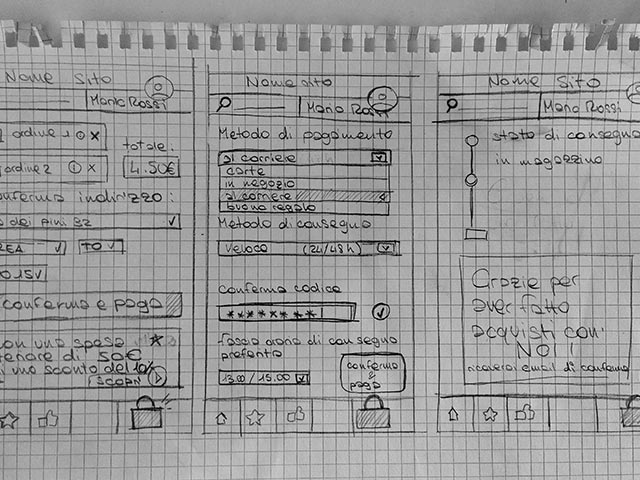 Nome Sito
Mario Rossi
ordine 1 x
totale:
ordine 2 x
4.50€
conferma indirizzo:
dei pini 32
TO
015
conferma e paga
con una spesa
50€
uno sconto del 10%
scopri
Nome sito
Mario Rossi
Metodo di pagamento
al corriere
carte
in negozio
al corriere
buono regalo
Metodo di consegna
Veloce (24/48h)
conferma codice
********
fascia oraria di consegna
preferita
13.00/15.00
conferma
e
paga
Nome Sito
Mario Rossi
stato di consegna
in magazzino
Grazie per
aver fatto
acquisti con
NOI!
riceverai email di conferma